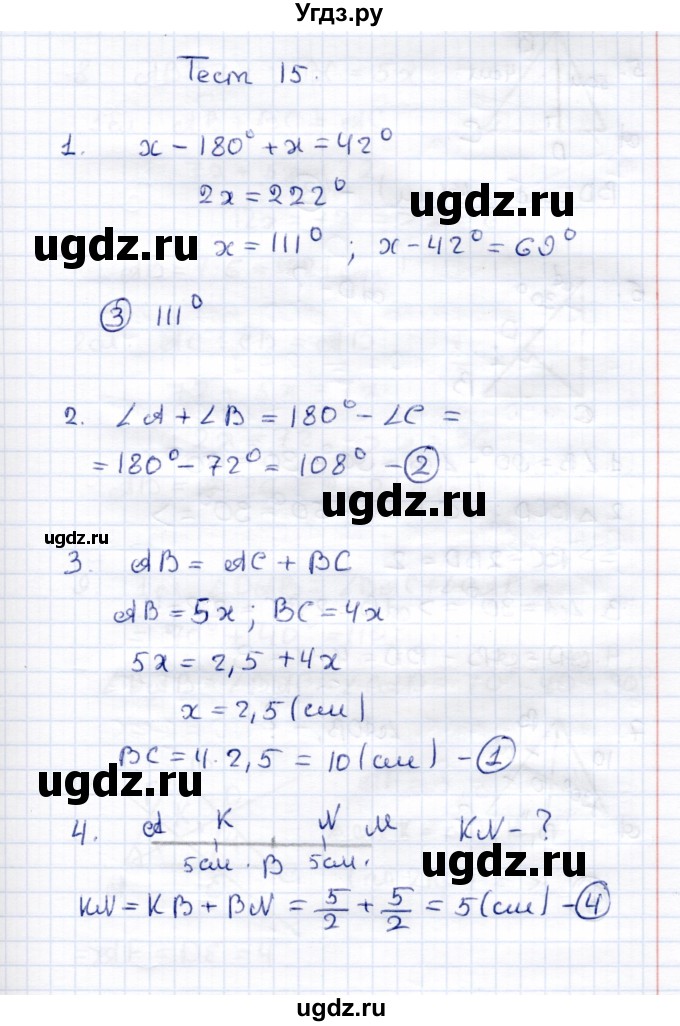 Угдз.ру
Тест 15.
1. x - 180° + x = 42°
2x = 222°
ugdz.ru
ugdz.ru
x = 111° ; x - 42° = 69°
③ 111°
2. ∠A + ∠B = 180° - ∠C =
= 180° - 72° = 108° - ②
ugdz.ru
ugdz.ru
3. AB = AC + BC
AB = 5x ; BC = 4x
5x = 2,5 + 4x
x = 2,5 (см)
BC = 4 · 2,5 = 10 (см) - ①
ugdz.ru
4. A K N M KN - ?
5см . B 5см .
ugdz.ru
KN = KB + BN = 5/2 + 5/2 = 5 (см) - ④
ugdz.ru